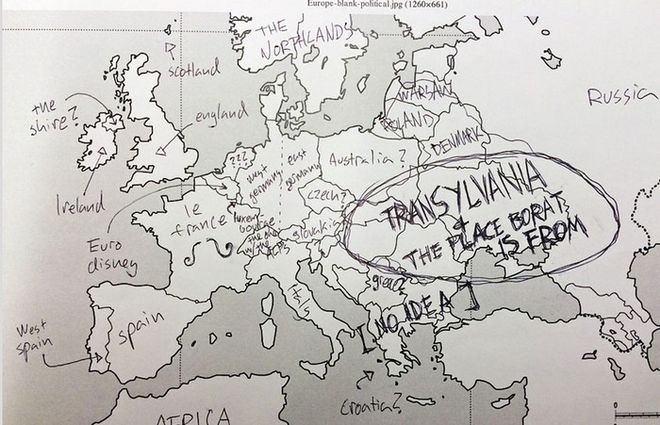 Europe-blank-political.jpg (1260×661)
THE
NORTHLANDS
scotland
the
shire?
england
Ireland
WARSAW
POLAND
DENMARK
Russia
???
west
germany
east
germany
Australia?
czech?
slovakia
TRANSYLVANIA
+
THE PLACE BORAT
IS FROM
le
france
Euro
disney
luxem
bourge
the one
w/ the
ALPS
West
spain
spain
[NO IDEA]
Croatia?
AFRICA